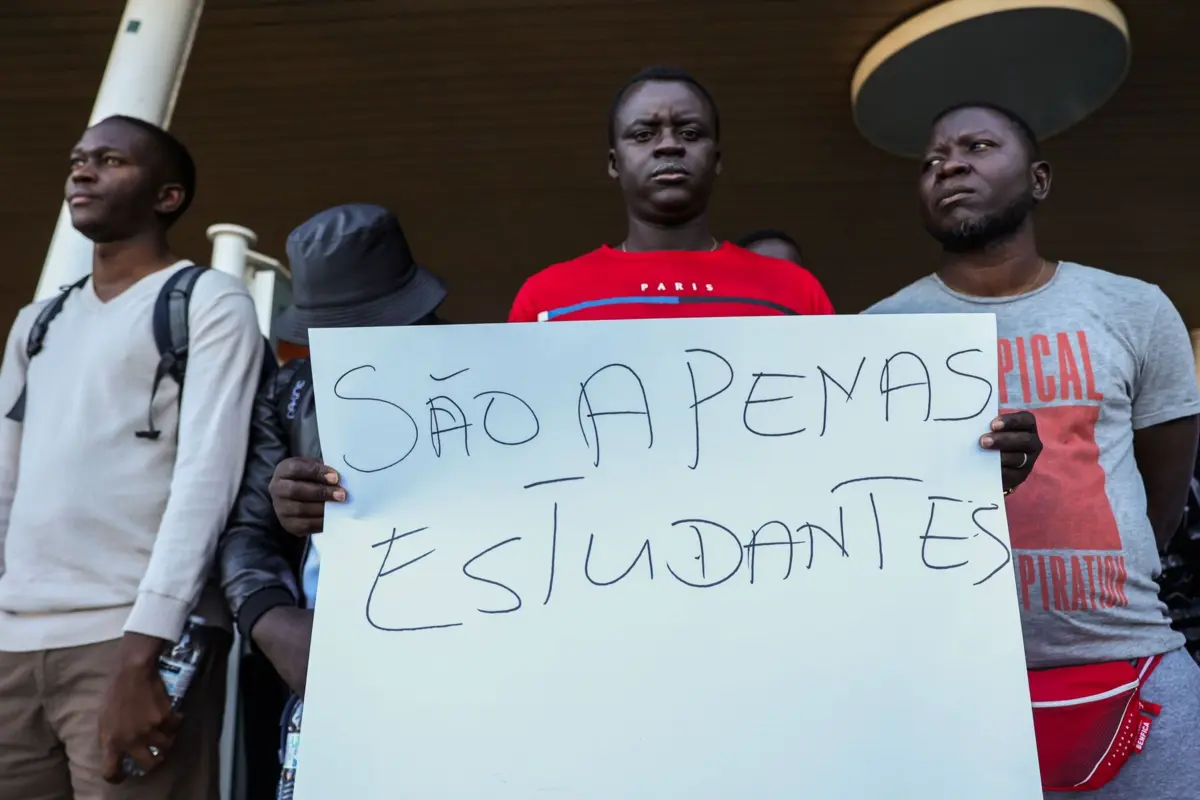 PARIS
SÃO APENAS
ESTUDANTES
PICAL
PIRATION
BENFICA